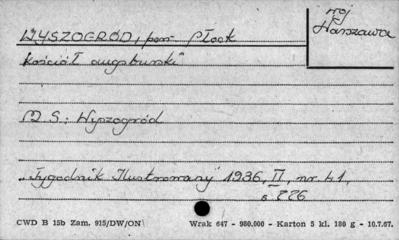 WYSZOGRÓD, pow. Płock
woj
Warszawa
Kościół augsburski"
M.S.: Wyszogród
"Tygodnik Ilustrowany" 1936, II, nr 41,
s 776
CWD B 15b Zam. 915/DW/ON Wrak 647 - 980.000 - Karton 5 kl. 180 g - 10.7.67.